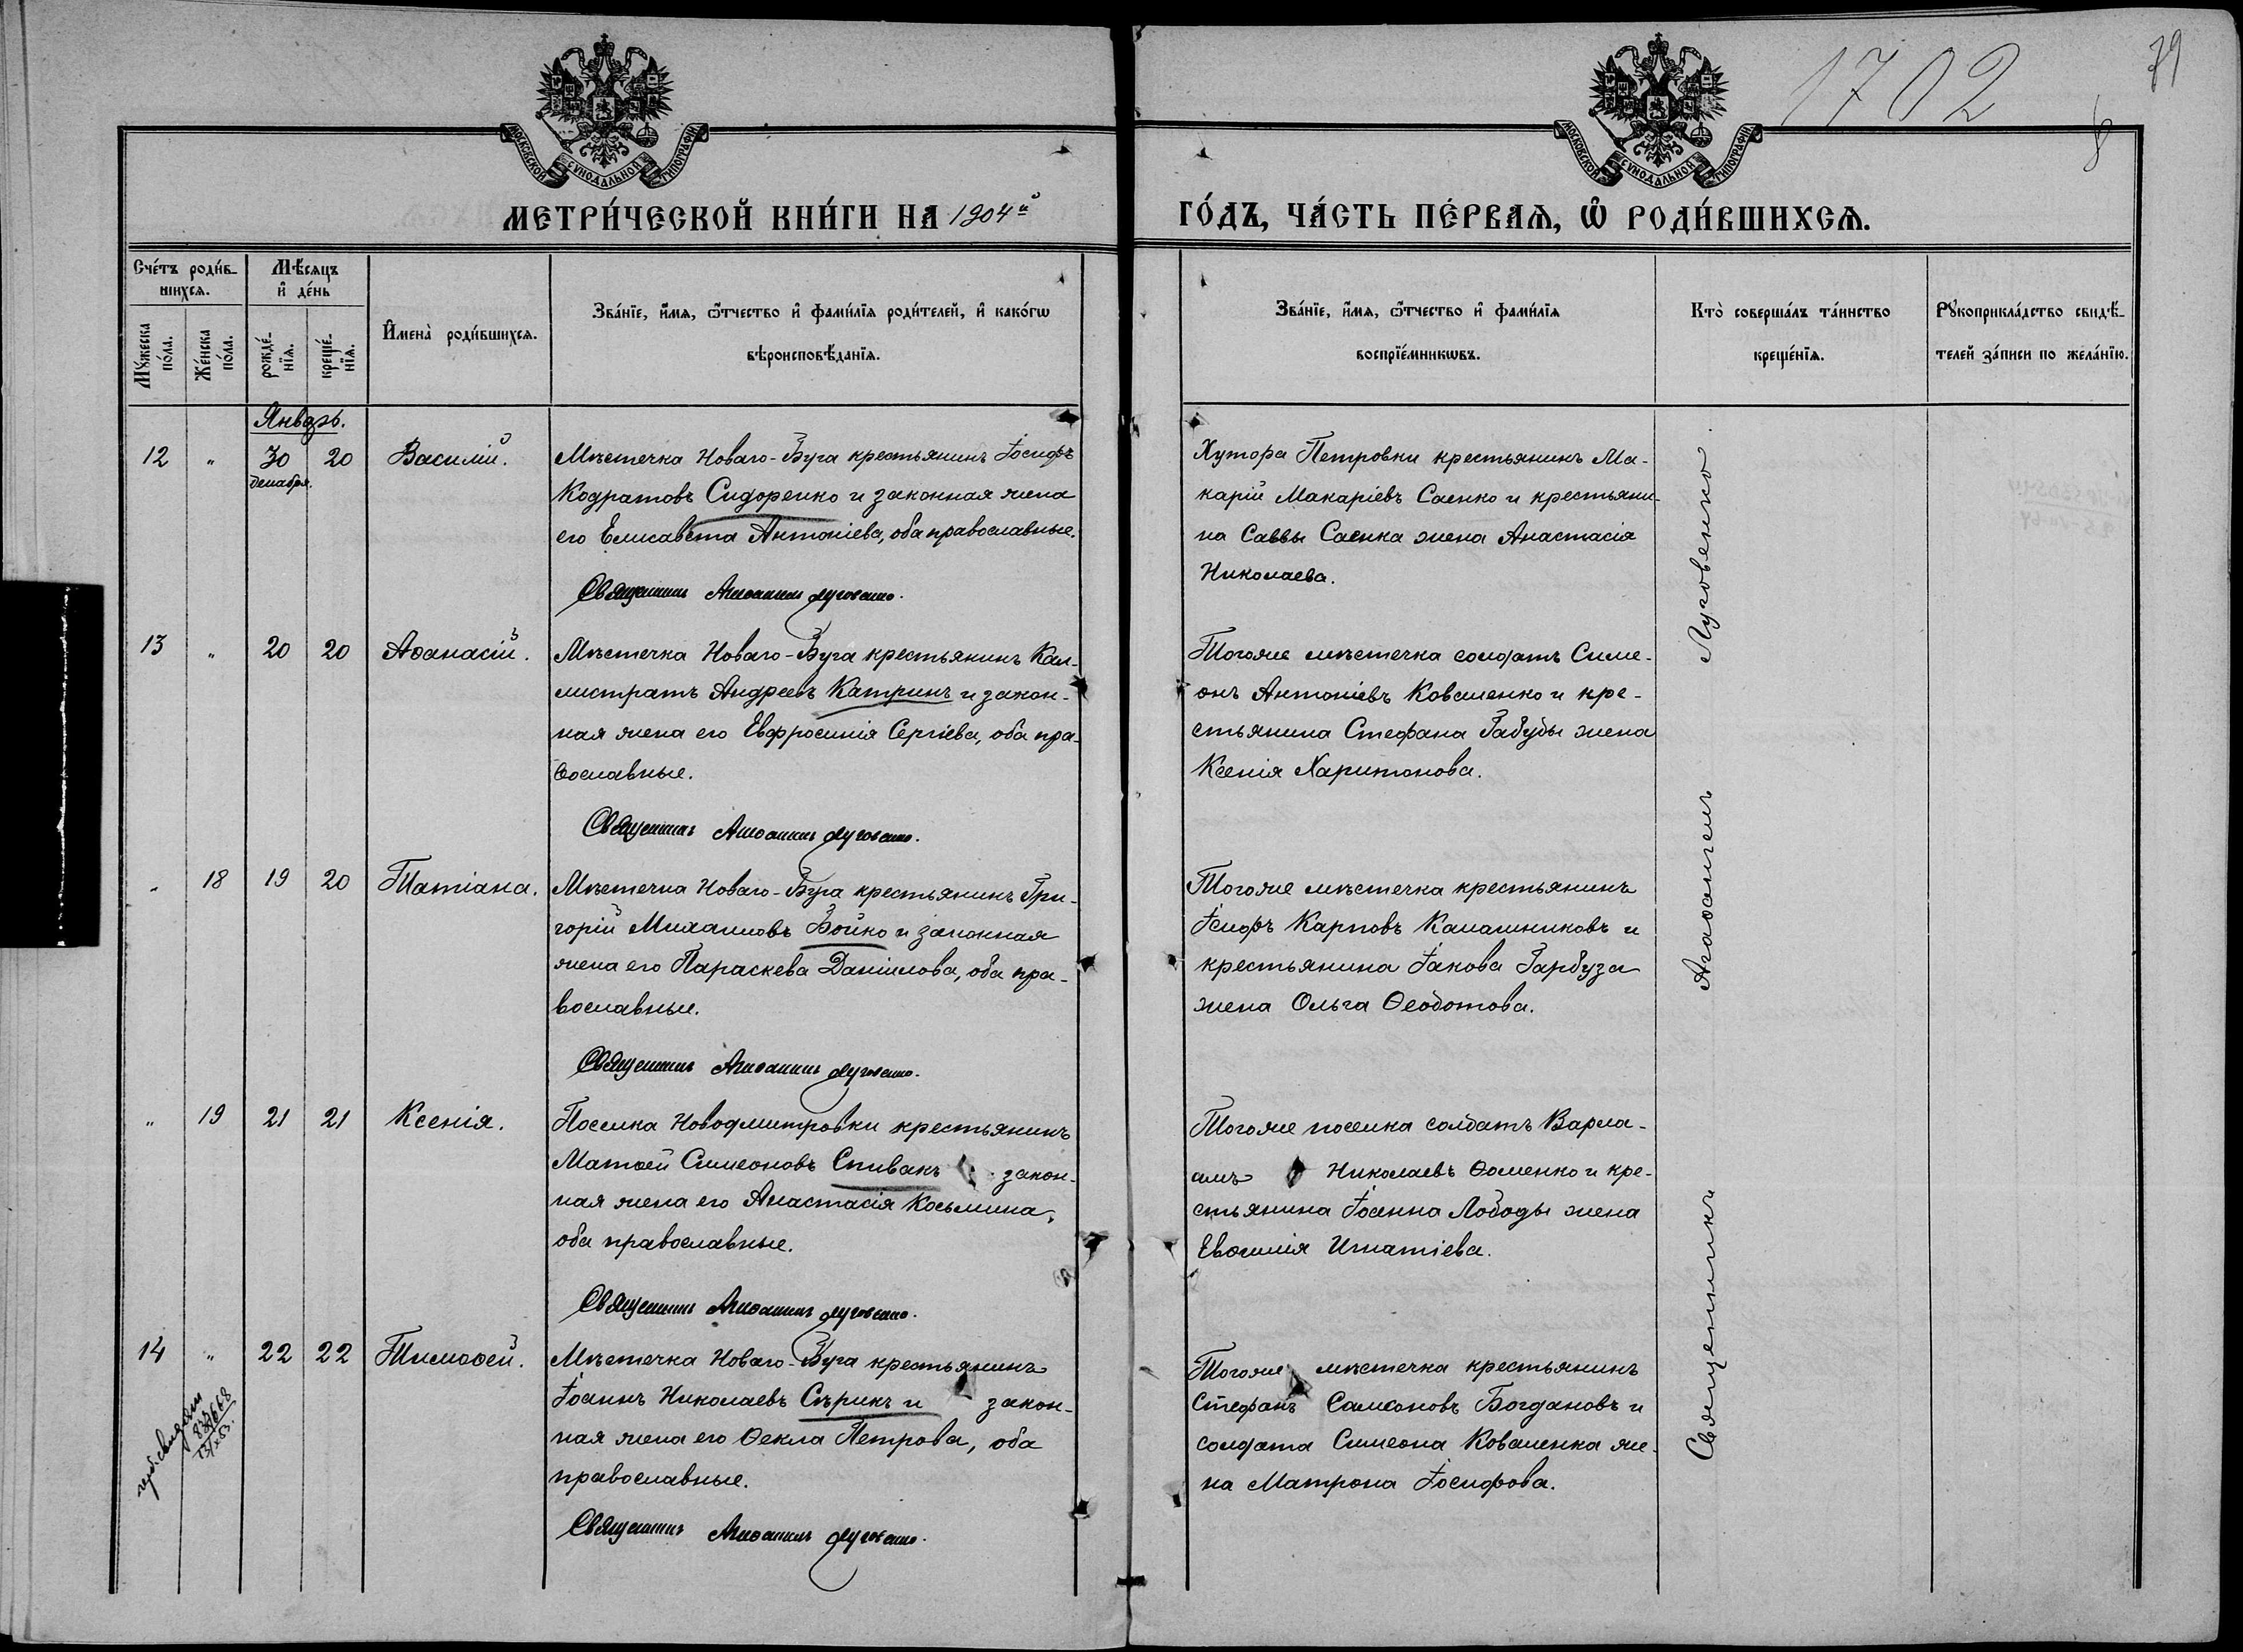 1702
79
МОСКОВСКОЙ СѴНОДАЛЬНОЙ ТИПОГРАФІИ
МОСКОВСКОЙ СѴНОДАЛЬНОЙ ТИПОГРАФІИ
МЕТРИ́ЧЕСКОЙ КНИ́ГИ НА 1904й
ГО́ДЪ, ЧА́СТЬ ПЕ́РВАѦ, Ѡ҆ РОДИ́ВШИХСѦ.
Сче́тъ роди́в-
шихсѧ.
Мѣ́сѧцъ
и҆ де́нь
Мꙋ́жеска
по́ла.
Же́нска
по́ла.
рожде́-
нїѧ.
креще́-
нїѧ.
И҆мена̀ роди́вшихсѧ.
Зва́нїе, и҆́мѧ, ѻ҆́тчество и҆ фами́лїѧ роди́телей, и҆ како́гѡ
вѣроисповѣ́данїѧ.
Зва́нїе, и҆́мѧ, ѻ҆́тчество и҆ фами́лїѧ
воспрїе́мникѡвъ.
Кто̀ соверша́лъ та́инство
креще́нїѧ.
Рꙋкоприкла́дство свидѣ́-
телей за́писи по жела́нїю.
Январь.
12 " 30 20 Василій.
декабря.
Мѣстечка Новаго-Буга крестьянинъ Іосифъ
Кодратовъ Сидоренко и законная жена
его Елисавета Антоніева, оба православные.
Священникъ Агаѳангелъ Луговенко.
Хутора Петровки крестьянинъ Ма-
карій Макаріевъ Саенко и крестьяни-
на Саввы Саенка жена Анастасія
Николаева.
13 " 20 20 Аѳанасій.
Мѣстечка Новаго-Буга крестьянинъ Кал-
листратъ Андреевъ Катринъ и закон-
ная жена его Евфросинія Сергіева, оба пра-
вославные.
Священникъ Агаѳангелъ Луговенко.
Тогоже мѣстечка солдатъ Симе-
онъ Антоніевъ Коваленко и кре-
стьянина Стефана Бабубы жена
Ксенія Харитонова.
" 18 19 20 Татіана.
Мѣстечка Новаго-Буга крестьянинъ Гри-
горій Михаиловъ Бойко и законная
жена его Параскева Даніилова, оба пра-
вославные.
Священникъ Агаѳангелъ Луговенко.
Тогоже мѣстечка крестьянинъ
Іосифъ Карповъ Калашниковъ и
крестьянина Іакова Гарбуза
жена Ольга Ѳеодотова.
" 19 21 21 Ксенія.
Поселка Новодмитровки крестьянинъ
Матѳей Симеоновъ Спивакъ закон-
ная жена его Анастасія Косьмина,
оба православные.
Священникъ Агаѳангелъ Луговенко.
Тогоже поселка солдатъ Варла-
амъ Николаевъ Ѳоменко и кре-
стьянина Іоанна Лободы жена
Евѳимія Игнатіева.
14 " 22 22 Тимоѳей.
Мѣстечка Новаго-Буга крестьянинъ
Іоаннъ Николаевъ Сѣрикъ и закон-
ная жена его Ѳекла Петрова, оба
православные.
Священникъ Агаѳангелъ Луговенко.
Тогоже мѣстечка крестьянинъ
Стефанъ Самсоновъ Богдановъ и
солдата Симеона Коваленка же-
на Матрона Іосифова.
Священникъ Агаѳангелъ Луговенко.